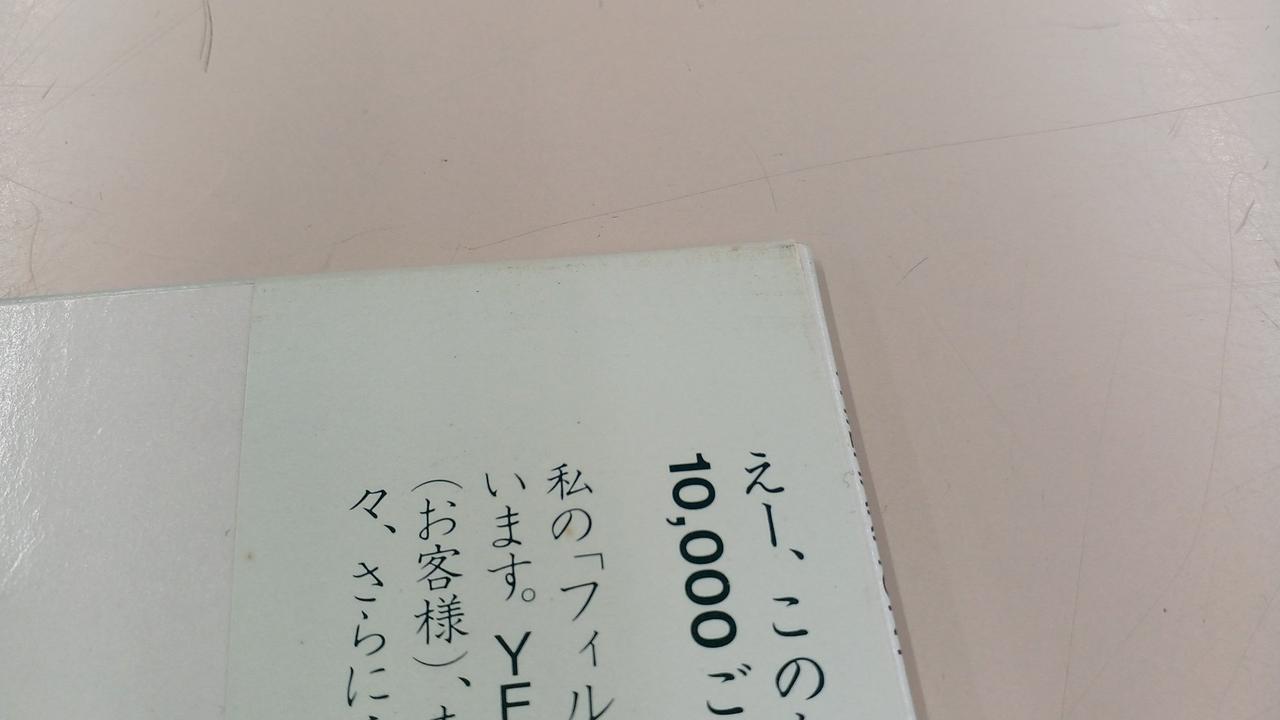 えー、この
10,000 ご
私の「フィル
います。YE
(お客様)、
々、さらに